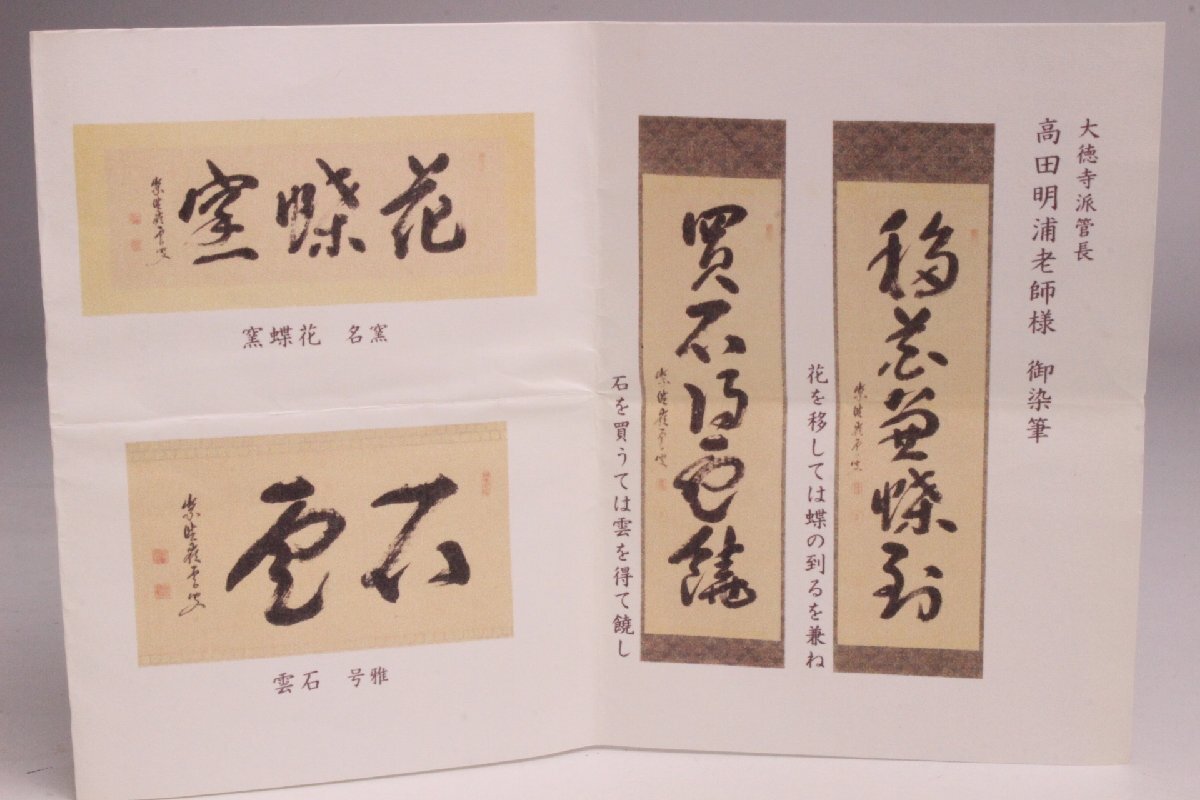 大徳寺派管長
高田明浦老師様 御染筆
移花兼蝶到
花を移しては蝶の到るを兼ね
買石得雲饒
石を買うては雲を得て饒し
花蝶窯
窯名 花蝶窯
石雲
雅号 石雲